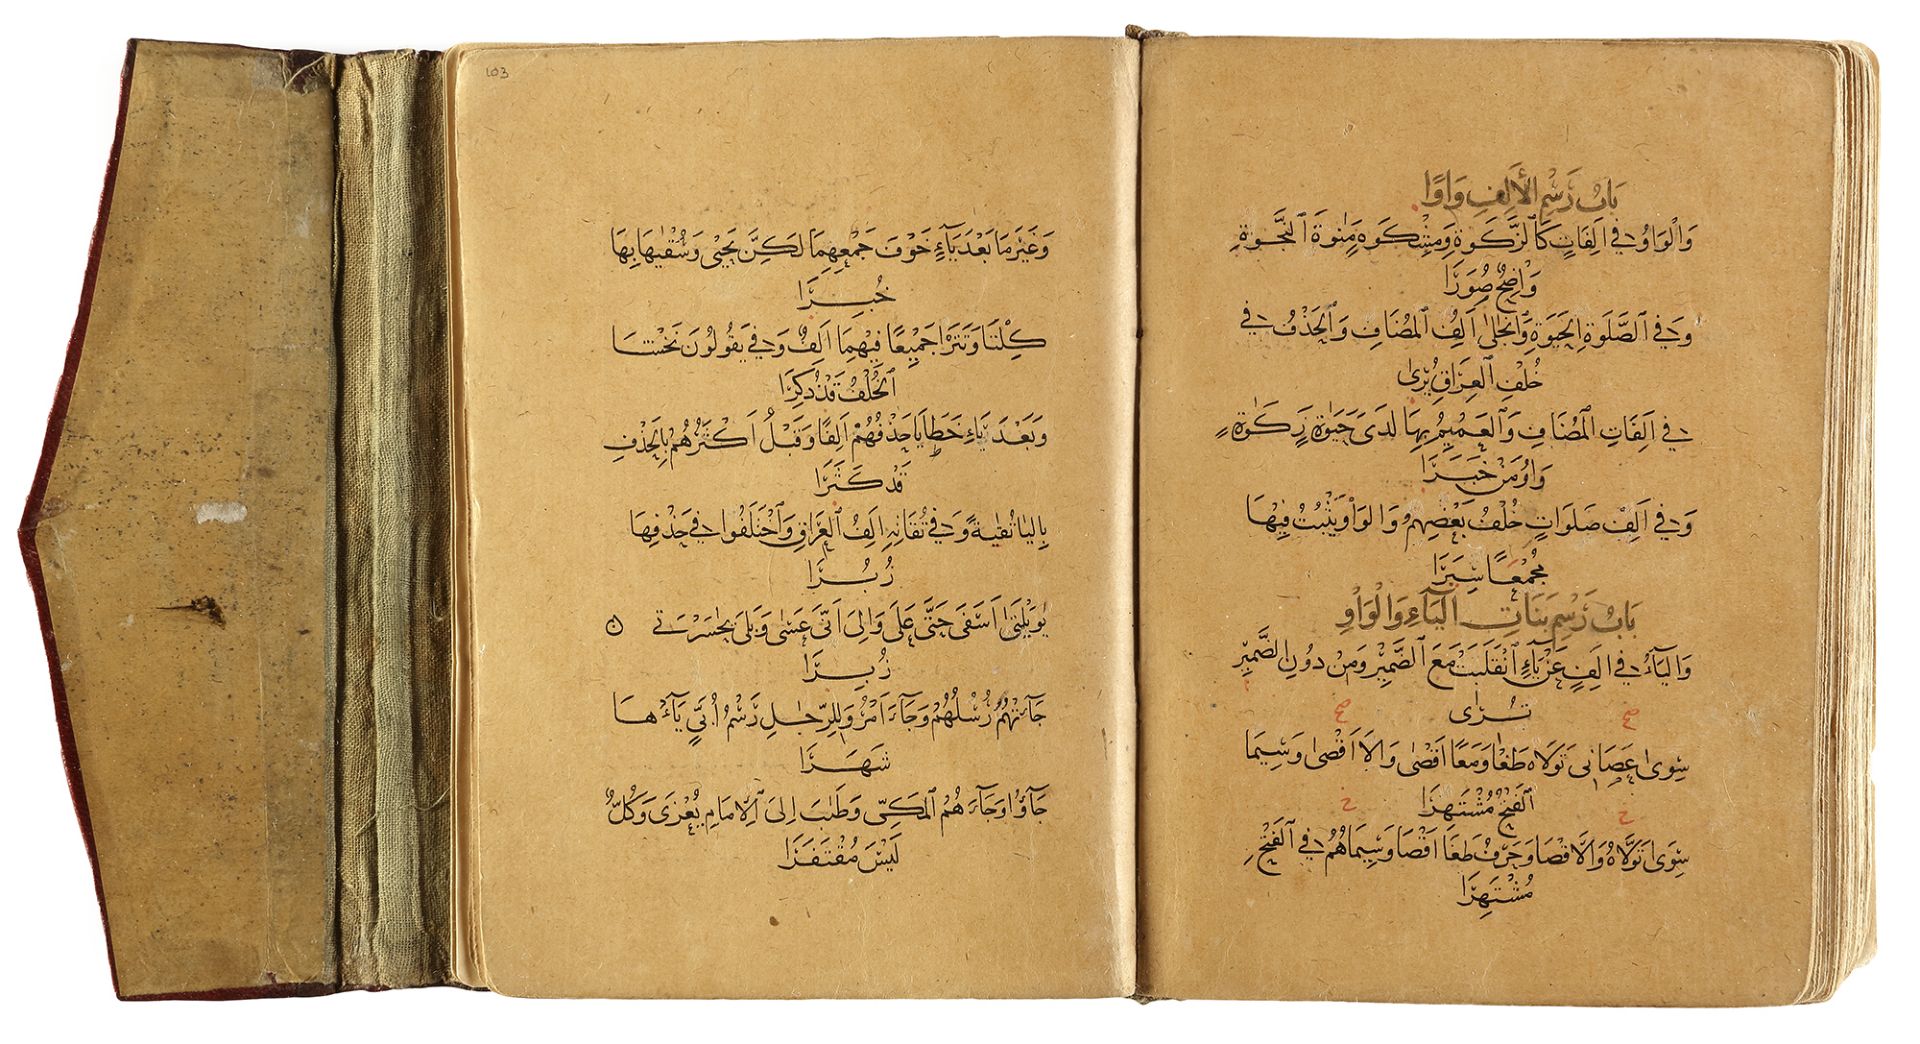 بَابُ رَسْمِ الْأَلِفِ وَاوًا
وَالْوَاوُ فِي اَلِفَاتٍ كَالزَّكَوةِ وَمِشْكَوه مَنوةَ النَّجَوةِ
وَاضِحٌ صُوَرًا
وَفِي الصَّلَوة الْحَيَوةِ وَانْجَلَى اَلِفُ الْمُضَافِ وَالْحَذْفُ فِي
خُلْفِ الْعِرَاقِ يُرَى
فِي اَلِفَاتِ الْمُضَافِ وَالْعَمِيمُ بِهَا لَدَى حَيَوةٍ زَكَوةٍ
وَاوُ مَنْ خَبَرَا
وَفِي اَلِفْ صَلَوَاتٍ خُلْفُ بَعْضِهِمُ وَالْوَاوُ يَثْبُتُ فِيهَا
مُجْمَعًا سِيَرَا
بَابُ رَسْمِ بَنَاتِ الْيَاءِ وَالْوَاوِ
وَالْيَاءُ فِي اَلِفٍ عَنْ يَاءٍ انْقَلَبَتْ مَعَ الضَّمِيرِ وَمِنْ دُونِ الضَّمِيرِ
تُرَى
سِوَى عَصَانِى تَوَلَّاه طَغَا وَمَعًا اَقْصَى وَالا اَقْصَى وَسِيمَا
الْفَتْحِ مُشْتَهِرَا
سِوَى تَوَلَّاهُ وَالَاقْصَا وَحَرْفُ طَغَا اَقْصَا وَسِيمَاهُمُ فِي الْفَتْحِ
مُشْتَهِرَا
103
وَغَيْرَ مَا بَعْدَ يَاءٍ خَوْفَ جَمْعِهِمَا لَكِنَّ يَحْيَى وَسُقْيَهَا بِهَا
خُبِرَا
كِلْتَا وَتَتْرَا جَمِيعًا فِيهِمَا اَلِفٌ وَفِي يَقُولُونَ نَخْشَا
الْخُلْفُ قَدْ ذُكِرَا
وَبَعْدَ يَاءِ خَطَايَا حَذْفُهُمْ اَلِفًا وَقَبْلُ اَكْثَرُهُمْ بِالْحَذْفِ
قَدْ كَثَرَا
بِالْيَا تُقَيةً وَفِي تُقَاتِهِ اَلِفُ الْعِرَاقِ وَاخْتَلَفُوا فِي حَذْفِهَا
زُبُرَا
يَوَيْلَتَى اَسَفَى حَتَّى عَلَى وَالِى اَنَّى عَسَى وَبَلَى يَحَسْرَتَى
زُبِرَا
جَآءَتْهُمُ رُسْلُهُمْ وَجَآءَ اَمْرُ وَلِلرِّجَالِ رَسْمُ اُبَيٍّ يَآءَهَا
شَهَرَا
جَآؤُا وَجَآءَهُمُ الْمَكِّى وَطَابَ اِلَى الْاِمَامِ يُعْزَى وَكُلٌّ
لَيْسَ مُقْتَفَرَا